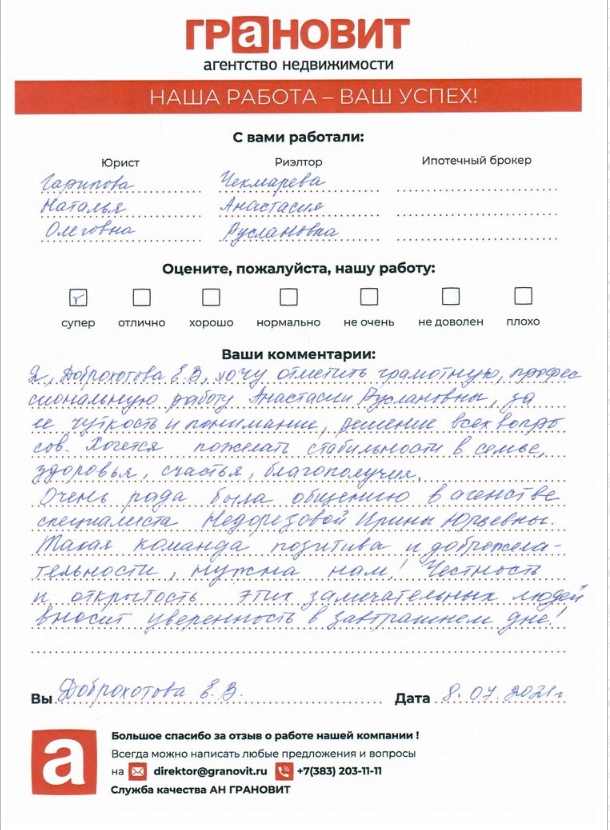 ГРаНОВИТ
агентство недвижимости
НАША РАБОТА – ВАШ УСПЕХ!
С вами работали:
Юрист Риэлтор Ипотечный брокер
Гарипова Чекмарева
Наталья Анастасия
Олеговна Руслановна
Оцените, пожалуйста, нашу работу:
супер отлично хорошо нормально не очень не доволен плохо
Ваши комментарии:
Я, Доброхотова Е.В, хочу отметить грамотную, профес
сиональную работу Анастасии Руслановны, за
ее чуткость и понимание, решение всех вопро
сов. Хочется пожелать стабильности в семье,
здоровья, счастья, благополучия.
Очень рада была общению в агенстве
специалиста Недорезовой Ирины Юрьевны.
Такая команда позитива и доброжела-
тельности, нужна нам! Честность
и открытость этих замечательных людей
вносит уверенность в завтрашнем дне!
Вы Доброхотова Е.В. Дата 8.07.2021г
а
Большое спасибо за отзыв о работе нашей компании !
Всегда можно написать любые предложения и вопросы
на direktor@granovit.ru +7(383) 203-11-11
Служба качества АН ГРАНОВИТ